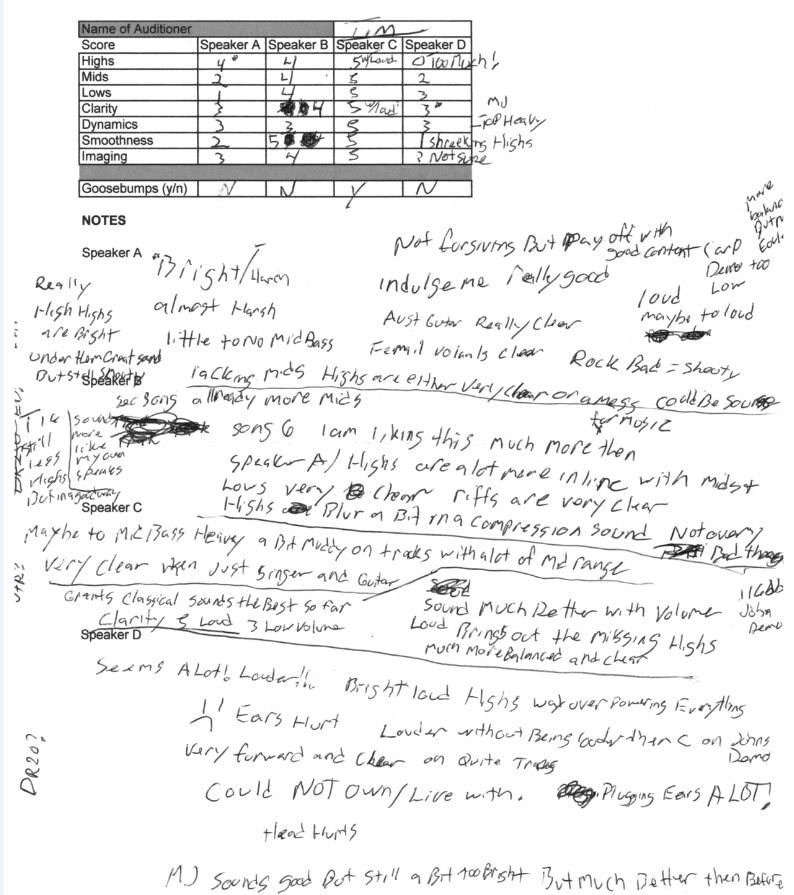 Name of Auditioner TIM
Score Speaker A Speaker B Speaker C Speaker D
Highs 4* 4 5 w/Loud 0 Too Much!
Mids 2 4 5 2
Lows 1 4 5 3
Clarity 3 4 5 w/loud 3* MJ
Dynamics 3 3 5 3 -Top Heavy
Smoothness 2 5 5 1 shreeking Highs
Imaging 3 4 5 ? Not sure
Goosebumps (y/n) N N Y N
NOTES
Speaker A
*Bright/Harsh
almost Harsh
little to No Mid Bass
Really
High Highs
are Bright
under them Great sound
But still Shouty
Not forgiving But pay off with
good content
indulge me really good
Aust Gutar Really Clear
Femail vocals clear
Rock Bad = Shouty
more
Demo too
Low
loud
maybe to loud
lacking mids Highs are either very clear or a mess could Be Source
or music
Speaker B
Sec Song allready more mids
song 6 I am liking this much more then
speaker A/ Highs are a lot more in line with mids+
Lows very Clear riffs are very clear
Highs Blur a Bit in a compression sound Not overy
Bad though
still
less
Highs
But in a good way
sounds
more
like
my own
speaks
Speaker C
Maybe to Mid Bass Heavy a Bit Muddy on tracks with a lot of Md range
very clear when Just Singer and Guitar
Grants Classical sounds the Best so far
Clarity 5 Loud 3 Low volume
Sound Much Better with Volume
Loud Brings out the missing Highs
much more Balanced and clear
John
Demo
Speaker D
Seems A Lot! Louder!!
Bright loud Highs way over powering Everything
!! Ears Hurt
Louder without Being louder then C on Johns
Demo
very forward and Clear on Quite Tracks
Could NOT Own/Live with.
Plugging Ears A LOT!
Head Hurts
MJ Sounds good But still a Bit too Bright But much Better then Before
DR20?